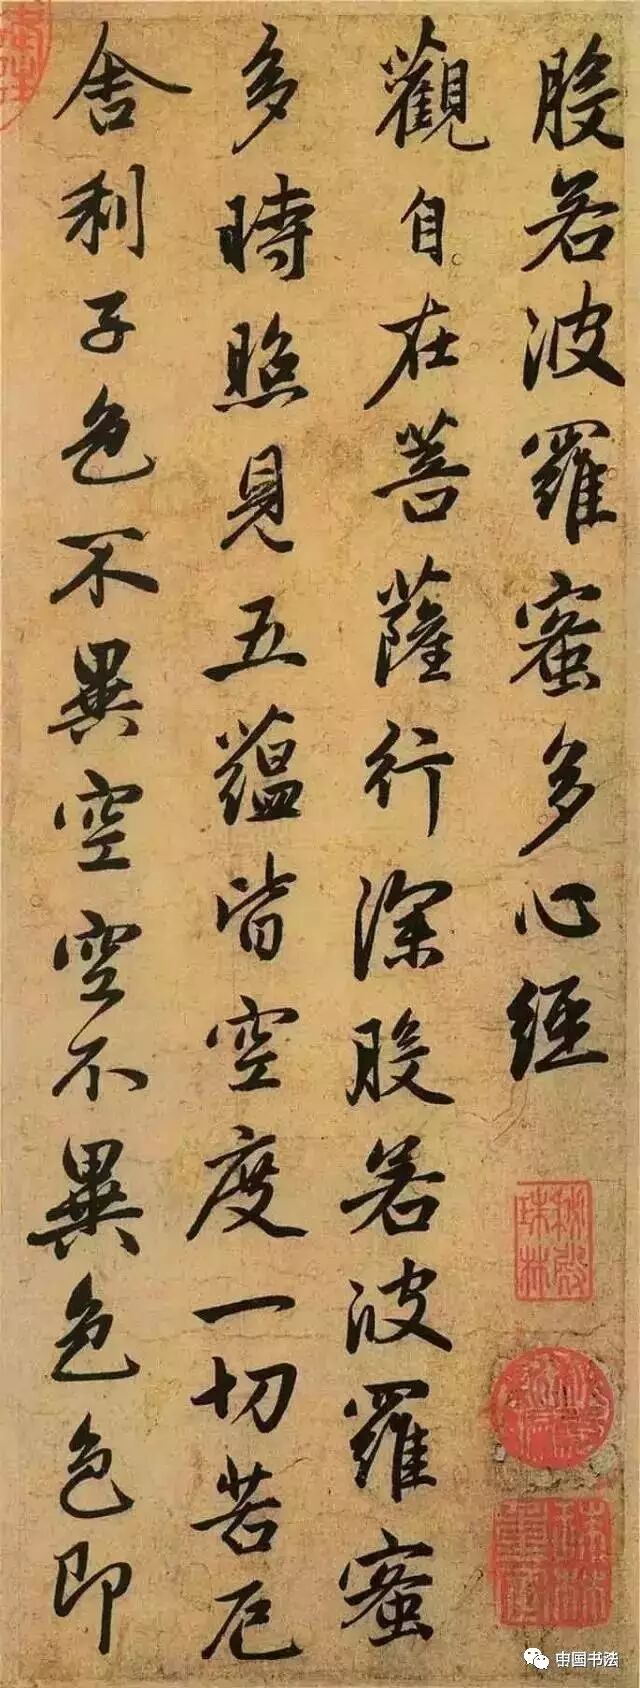 般若波羅蜜多心經
觀自在菩薩行深般若波羅蜜
多時照見五蘊皆空度一切苦厄
舍利子色不異空空不異色色即
秘殿珠林
中国书法